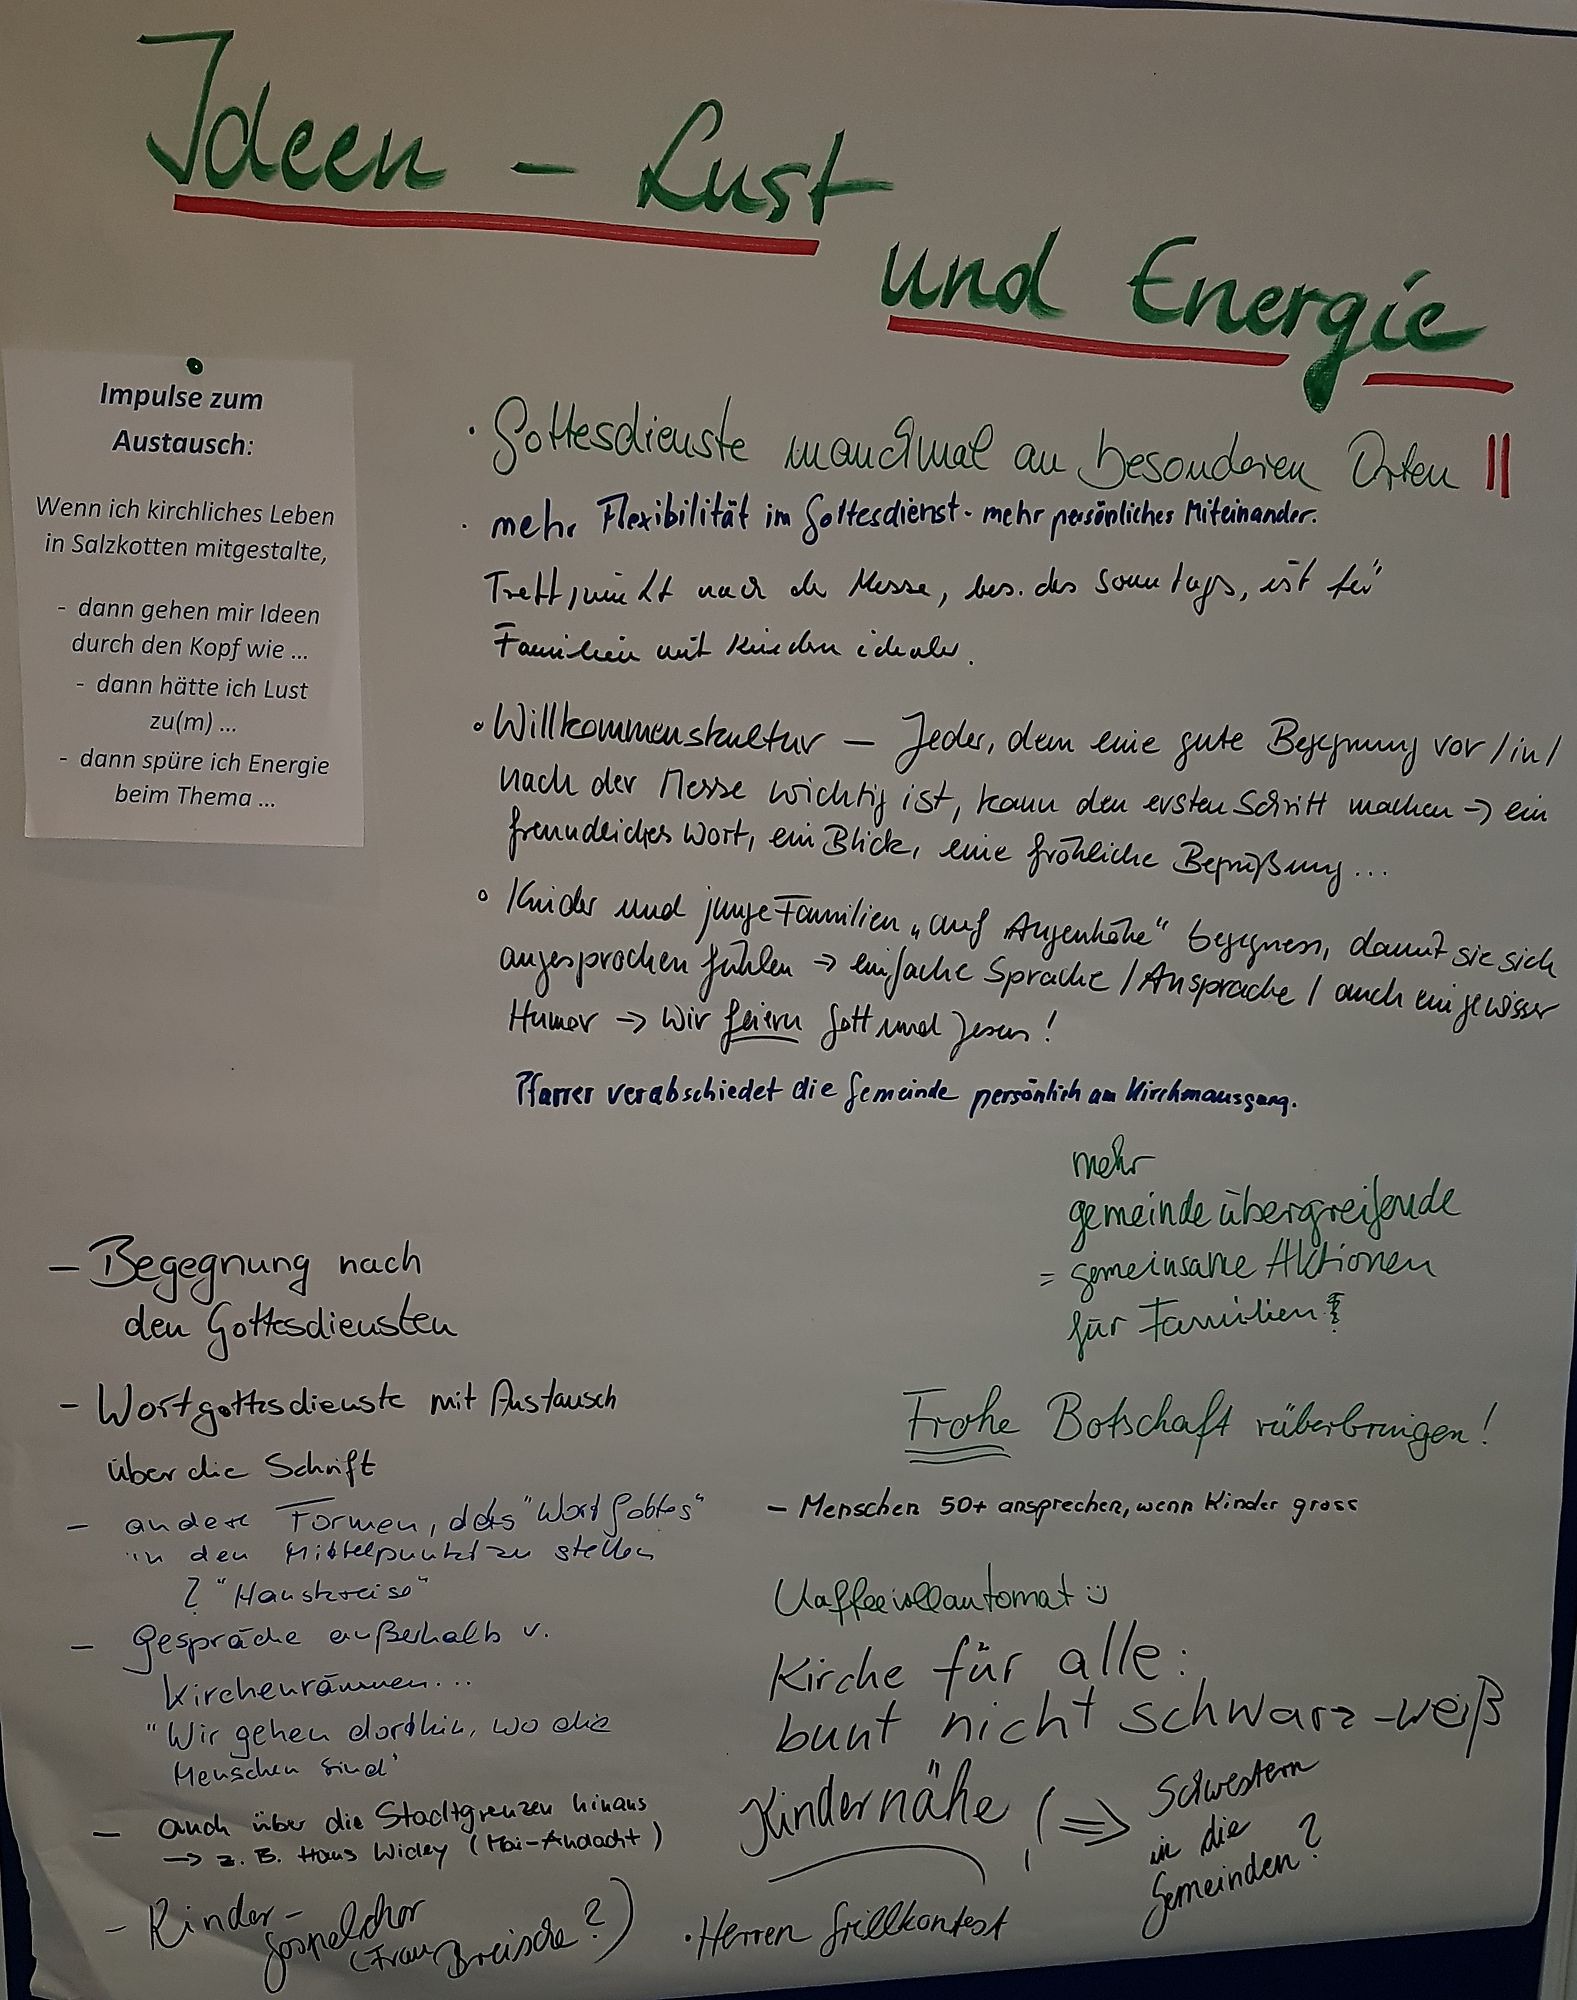 Ideen - Lust
und Energie
Impulse zum
Austausch:
Wenn ich kirchliches Leben
in Salzkotten mitgestalte,
- dann gehen mir Ideen
durch den Kopf wie ...
- dann hätte ich Lust
zu(m) ...
- dann spüre ich Energie
beim Thema ...
· Gottesdienste manchmal an besonderen Orten ||
· mehr Flexibilität im Gottesdienst - mehr persönliches Miteinander.
Treffpunkt nach der Messe, bes. des Sonntags, ist für
Familien mit Kindern idealer.
° Willkommenskultur – Jeder, dem eine gute Begegnung vor / in /
nach der Messe wichtig ist, kann den ersten Schritt machen → ein
freundliches Wort, ein Blick, eine fröhliche Begrüßung ...
° Kinder und junge Familien „auf Augenhöhe" begegnen, damit sie sich
angesprochen fühlen → einfache Sprache / Ansprache / auch ein gewisser
Humor → Wir feiern Gott und Jesus !
Pfarrer verabschiedet die Gemeinde persönlich am Kirchenausgang.
mehr
gemeindeübergreifende
= gemeinsame Aktionen
für Familien!
– Begegnung nach
den Gottesdiensten
– Wortgottesdienste mit Austausch
über die Schrift
– andere Formen, das "Wort Gottes"
in den Mittelpunkt zu stellen
? "Hauskreise"
– Gespräche außerhalb v.
Kirchenräumen...
"Wir gehen dorthin, wo die
Menschen sind"
– auch über die Stadtgrenzen hinaus
→ z. B. Haus Widey (Mai-Andacht)
– Kinder-
Gospelchor
(Frau Breische?)
Frohe Botschaft rüberbringen!
– Menschen 50+ ansprechen, wenn Kinder gross
Kaffeevollautomat :)
Kirche für alle:
bunt nicht schwarz-weiß
Kindernähe ! (⇒ Schwestern
in die
Gemeinden?
· Herren Grillkontest